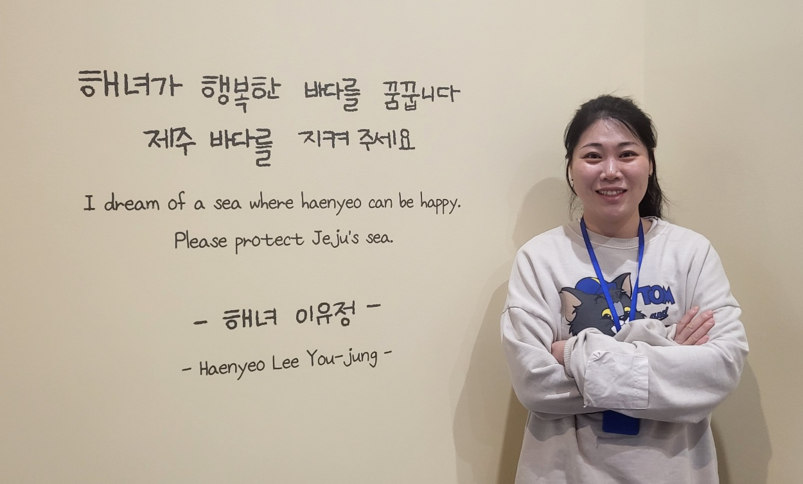 해녀가 행복한 바다를 꿈꿉니다
제주 바다를 지켜 주세요
I dream of a sea where haenyeo can be happy.
Please protect Jeju's sea.
- 해녀 이유정 -
- Haenyeo Lee You-jung -
TOM
and